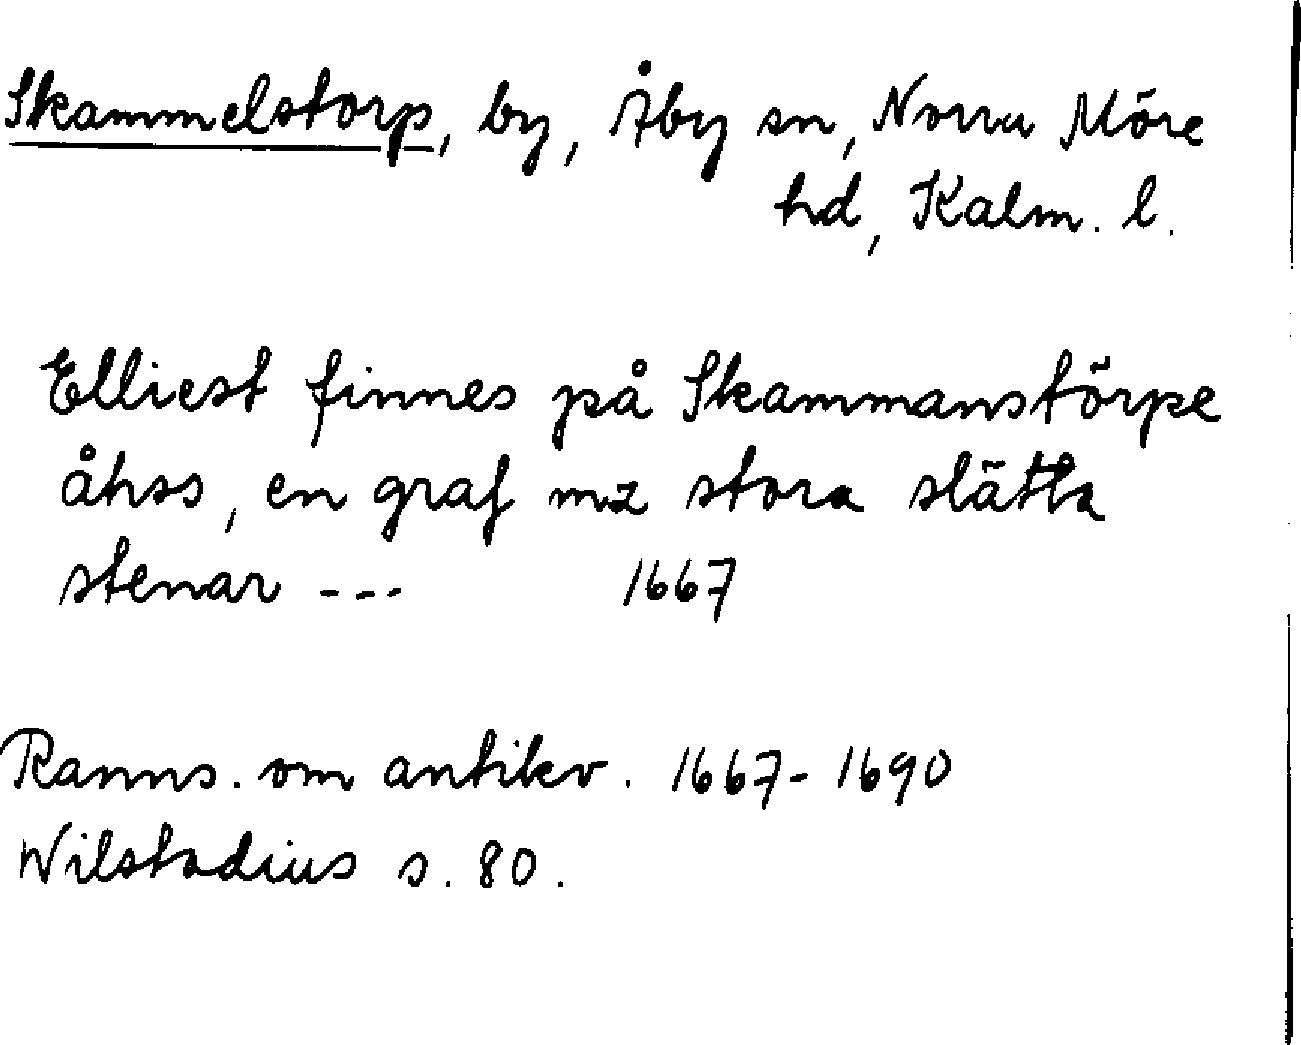 Skammelstorp, by, Åby sn, Norra Möre
hd, Kalm. l.
Elliest finnes på Skammanstörpe
åhss, en graf mz stora slätta
stenar ---   1667
Ranns. om antikv. 1667-1690
Wilstadius s. 80.